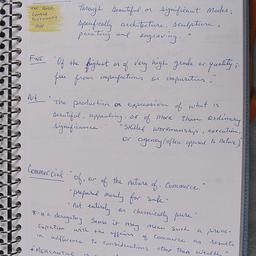 through beautiful or significant modes;
specifically architecture, sculpture,
painting and engraving."
Fine "Of the highest or of very high grade or quality;
free from imperfections or impurities."
Art "The production or expression of what is
beautiful, appealing, or of more than ordinary
significance. "Skilled workmanship, execution,
or agency (often opposed to Nature)
Commercial "of, or of the nature of, commerce."
"prepared merely for sale"
"Not entirely or chemically pure"
in a derogatory sense it may mean such a preoc-
cupation with the affairs of commerce as results
in indifference to considerations other than wealth